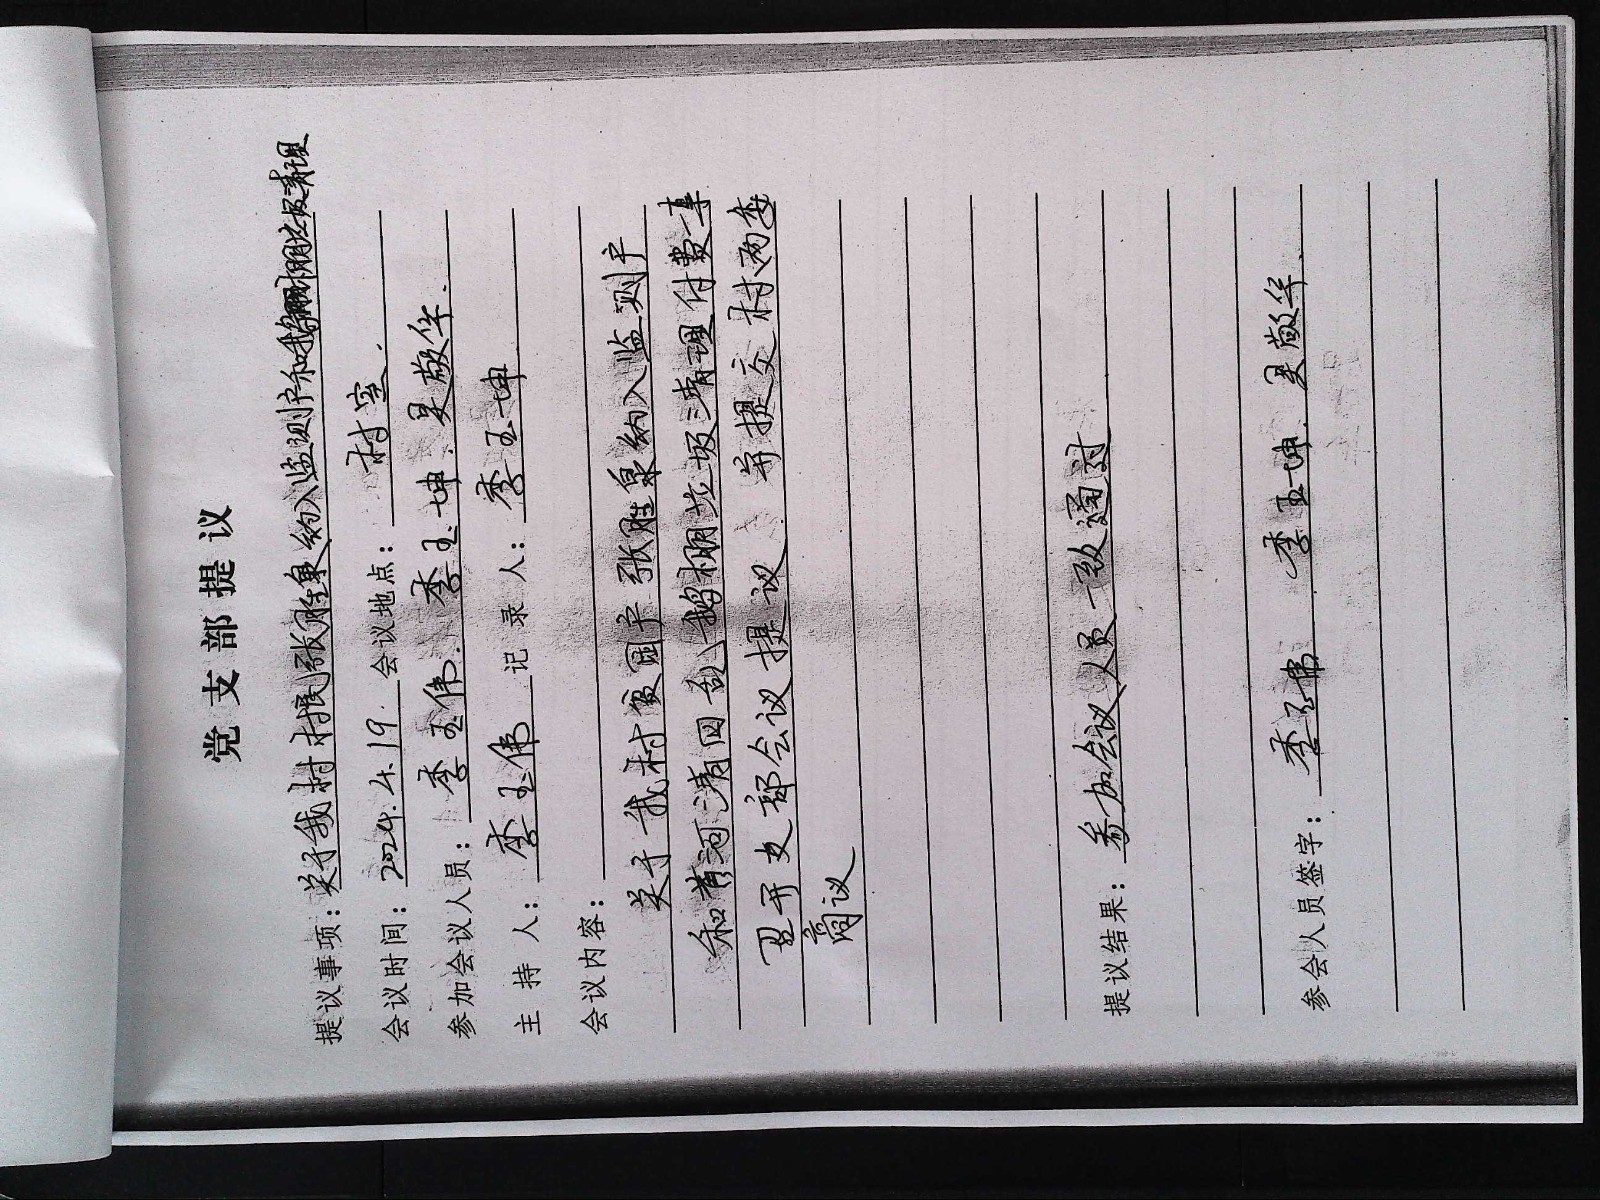 党支部提议
提议事项：关于我村村民张胜泉纳入监测户和鹅棚垃圾清理
会议时间：2024.4.19. 会议地点：村室.
参加会议人员：李玉伟. 李玉坤. 吴敬华.
主 持 人：李玉伟 记 录 人：李玉坤
会议内容：
关于我村贫困户张胜泉纳入监测户
和黄河清四乱鹅棚垃圾清理付费一事
召开支部会议提议 并提交村两委
商议
提议结果：参加会议人员一致通过
参会人员签字：李玉伟 李玉坤. 吴敬华.